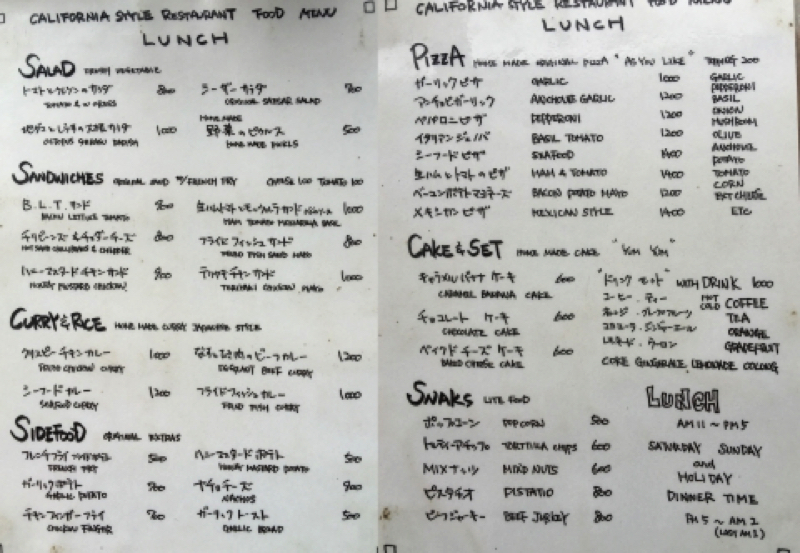 CALIFORNIA STYLE RESTAURANT FOOD MENU
LUNCH
SALAD
800
シーザーサラダ 700
TOMATO &
CAESAR SALAD
HOME MADE
1000
野菜のピクルス 500
HOME MADE PICKLS
SANDWICHES ORIGINAL SAND W/FRENCH FRY CHEESE 100 TOMATO 100
B.L.T. サンド
1000
BACON LETTUCE TOMATO
HAM TOMATO MOZZARELLA BASIL
チリビーンズ & チェダーチーズ 800
フライドフィッシュサンド 800
FRIED FISH SAND MAYO
ハニーマスタードチキンサンド 900
テリヤキチキンサンド 1000
HONEY MUSTARD CHICKEN
TERIYAKI CHICKEN MAYO
CURRY & RICE HOME MADE CURRY JAPANESE STYLE
クリスピーチキンカレー 1000
ビーフカレー 1200
CHICKEN CURRY
EGGPLANT BEEF CURRY
シーフードカレー 1200
フライドフィッシュカレー 1000
SEAFOOD CURRY
FRIED FISH CURRY
SIDEFOOD ORIGINAL EXTRAS
フレンチフライ 500
ハニーマスタードポテト 500
FRENCH FRY
HONEY MASTARD POTATO
ガーリックポテト 700
ナチョチーズ 900
GARLIC POTATO
NACHOS
チキンフィンガーフライ 700
ガーリックトースト 500
CHICKEN FINGER
GARLIC BREAD
CALIFORNIA STYLE RESTAURANT FOOD MENU
LUNCH
PIZZA HOME MADE ORIGINAL PIZZA "AS YOU LIKE" TOPPING 200
ガーリックピザ GARLIC 1000
GARLIC
PEPPERONI
アンチョビガーリック ANCHOVIE GARLIC 1200
BASIL
ペパロニピザ PEPPERONI 1200
ONION
MUSHROOM
イタリアンジェノバ BASIL TOMATO 1200
OLIVE
シーフードピザ SEAFOOD 1400
ANCHOVIE
POTATO
生ハムとトマトのピザ HAM & TOMATO 1400
TOMATO
CORN
ベーコンポテトマヨネーズ BACON POTATO MAYO 1200
CHEESE
メキシカンピザ MEXICAN STYLE 1400
ETC
CAKE & SET HOME MADE CAKE "YUM YUM"
キャラメルバナナケーキ 600
"ドリンクセット" WITH DRINK 1000
CARAMEL BANANA CAKE
コーヒー・ティー HOT COLD COFFEE
オレンジ・グレープフルーツ TEA
チョコレートケーキ 600
コカコーラ・ジンジャーエール ORANGE
CHOCOLATE CAKE
レモネード・ウーロン GRAPEFRUIT
ベイクドチーズケーキ 600
BAKED CHEESE CAKE
COKE GINGERALE LEMONADE OOLONG
SNAKS LITE FOOD
ポップコーン POPCORN 500
トルティーアチップス TORTILLA chips 600
MIXナッツ MIXD NUTS 600
ピスタチオ PISTATIO 800
ビーフジャーキー BEEF JURKEY 800
LUNCH
AM 11 ~ PM 5
SATURDAY SUNDAY
and
HOLIDAY
DINNER TIME
PM 5 ~ AM 2